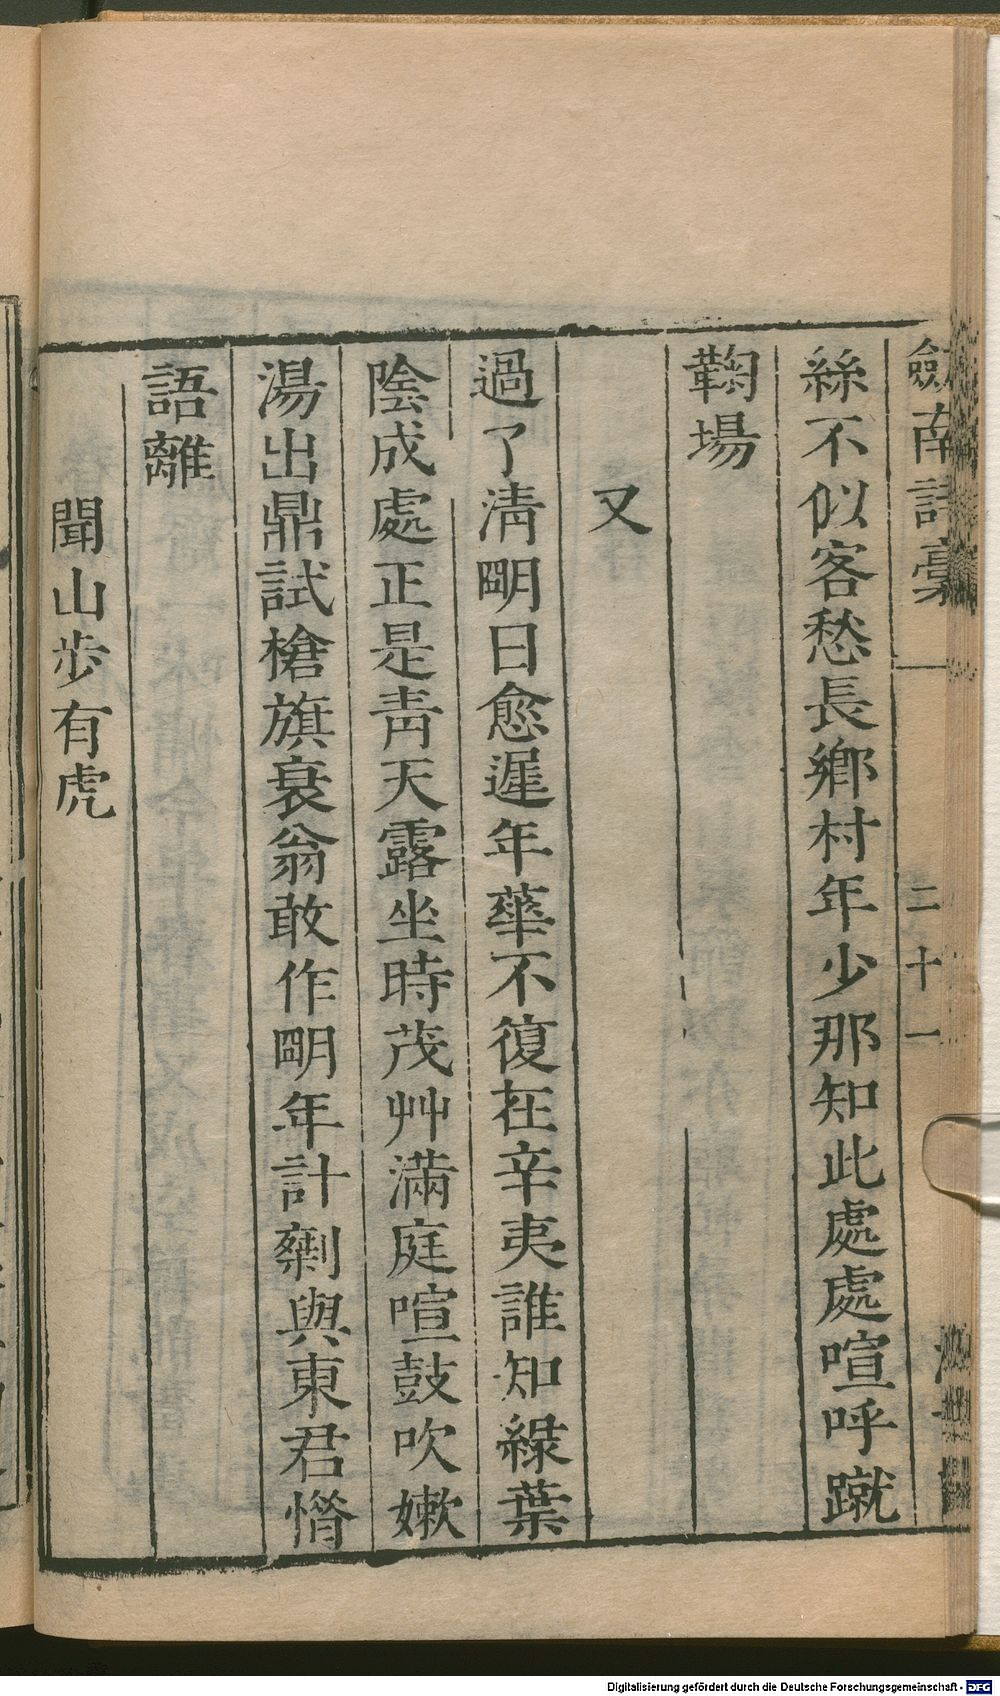 劍南詩稾 二十一
絲不似客愁長鄉村年少那知此處處喧呼蹴
鞠場
又
過了淸朙日愈遲年華不復在辛夷誰知綠葉
陰成處正是靑天露坐時茂艸滿庭喧鼓吹嫰
湯出鼎試槍旗衰翁敢作朙年計剩與東君惜
語離
聞山步有虎
Digitalisierung gefördert durch die Deutsche Forschungsgemeinschaft - DFG